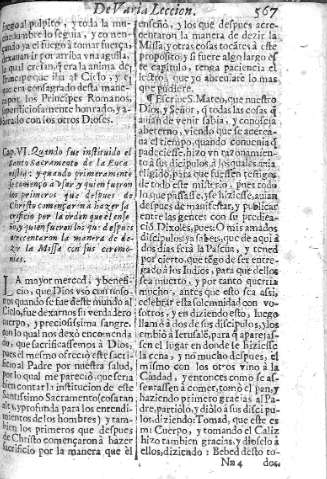 De Varia Leccion. 567
fuego al pulpito, y toda la mu-
chedumbre lo seguia, y començ-
ando ya el fuego a tomar fuerça,
dexauan ir por arriba vna aguila,
la qual creian q̃ era la anima del
Principe que iba al Cielo, y el
que era consagrado desta mane-
por los Principes Romanos,
supersticiosamente honrado, y a-
dorado con los otros Dioses.
Cap. VI. Quando fue instituido el
Santo Sacramento de la Euca
ristia: y quando primeramente
se començò a vsar y quien fueron
los primeros que despues de
Christo començaron à hazer sa
crificio por la orden que el ense
ñò, y quien fueron los que despues
acrecentaron la manera de de-
zir la Missa con sus ceremo-
nias.
LA mayor merced, y benefi-
cio, que Dios vsò con noso-
tros quando se fue deste mundo al
Cielo, fue dexarnos su verdadero
cuerpo, y preciosissima sangre.
con lo qual nos dexò encomenda
do, que sacrificassemos à Dios,
pues el mesmo ofreciò este sacri-
ficio al Padre por nuestra salud,
por lo qual me pareciò, que seria
bien contar la institucion de este
Santissimo Sacramento (cosa tan
alta, y profunda para los entendi-
mientos de los hombres) y tam-
bien los primeros que despues
de Christo començaron à hazer
sacrificio por la manera que èl
enseñò, y los que despues acre-
centaron la manera de dezir la
Missa, y otras cosas tocãtes à este
proposito; y si fuere algo largo es
te capitulo, tenga paciencia el
lector, que yo abreuiarè lo mas
que pudiere.
¶ Escriue S. Mateo, que nuestro
Dios, y Señor, q̃ todas las cosas q̃
auian de venir sabia, y conociа
abeterno, viendo que se acerca-
ua el tiempo, quando conuenia q̃
padeciesse, hizo vn razonamien-
to à sus dicipulos à los quales auia
elegido, para que fuessen testigos
de todo este misterio, pues todo
lo que passasse, y se hiziesse, auian
despues de manifestar, y publicar
entre las gentes con su predica-
ciõ. Dixoles, pues: O mis amados
dicipulos ya sabeis, que de aqui à
dos dias serà la Pascua, y tened
por cierto, que tẽgo de ser entre-
gado à los Iudios, para que dellos
sea muerto, y por tanto querria
mucho, antes que esto sea assi,
celebrar esta solemnidad con vo-
sotros, y en diziendo esto, luego
llamò à dos de sus dicipulos, y los
embiò à Ierusalẽ, para q̃ aparejas-
sen el lugar en donde le hiziesse
la cena, y no mucho despues, el
mismo con los otros vino à la
Ciudad, y entonces como se as-
sentassen à comer, tomò el pan, y
haziendo primero gracias al Pa-
dre, partiòlo, y diòlo à sus dicipu-
los, diziendo: Tomad, que este es
mi Cuerpo, y tomando el Caliz
hizo tambien gracias, y diòselo à
ellos, diziendo: Bebed desto to-
Nn 4 dos,